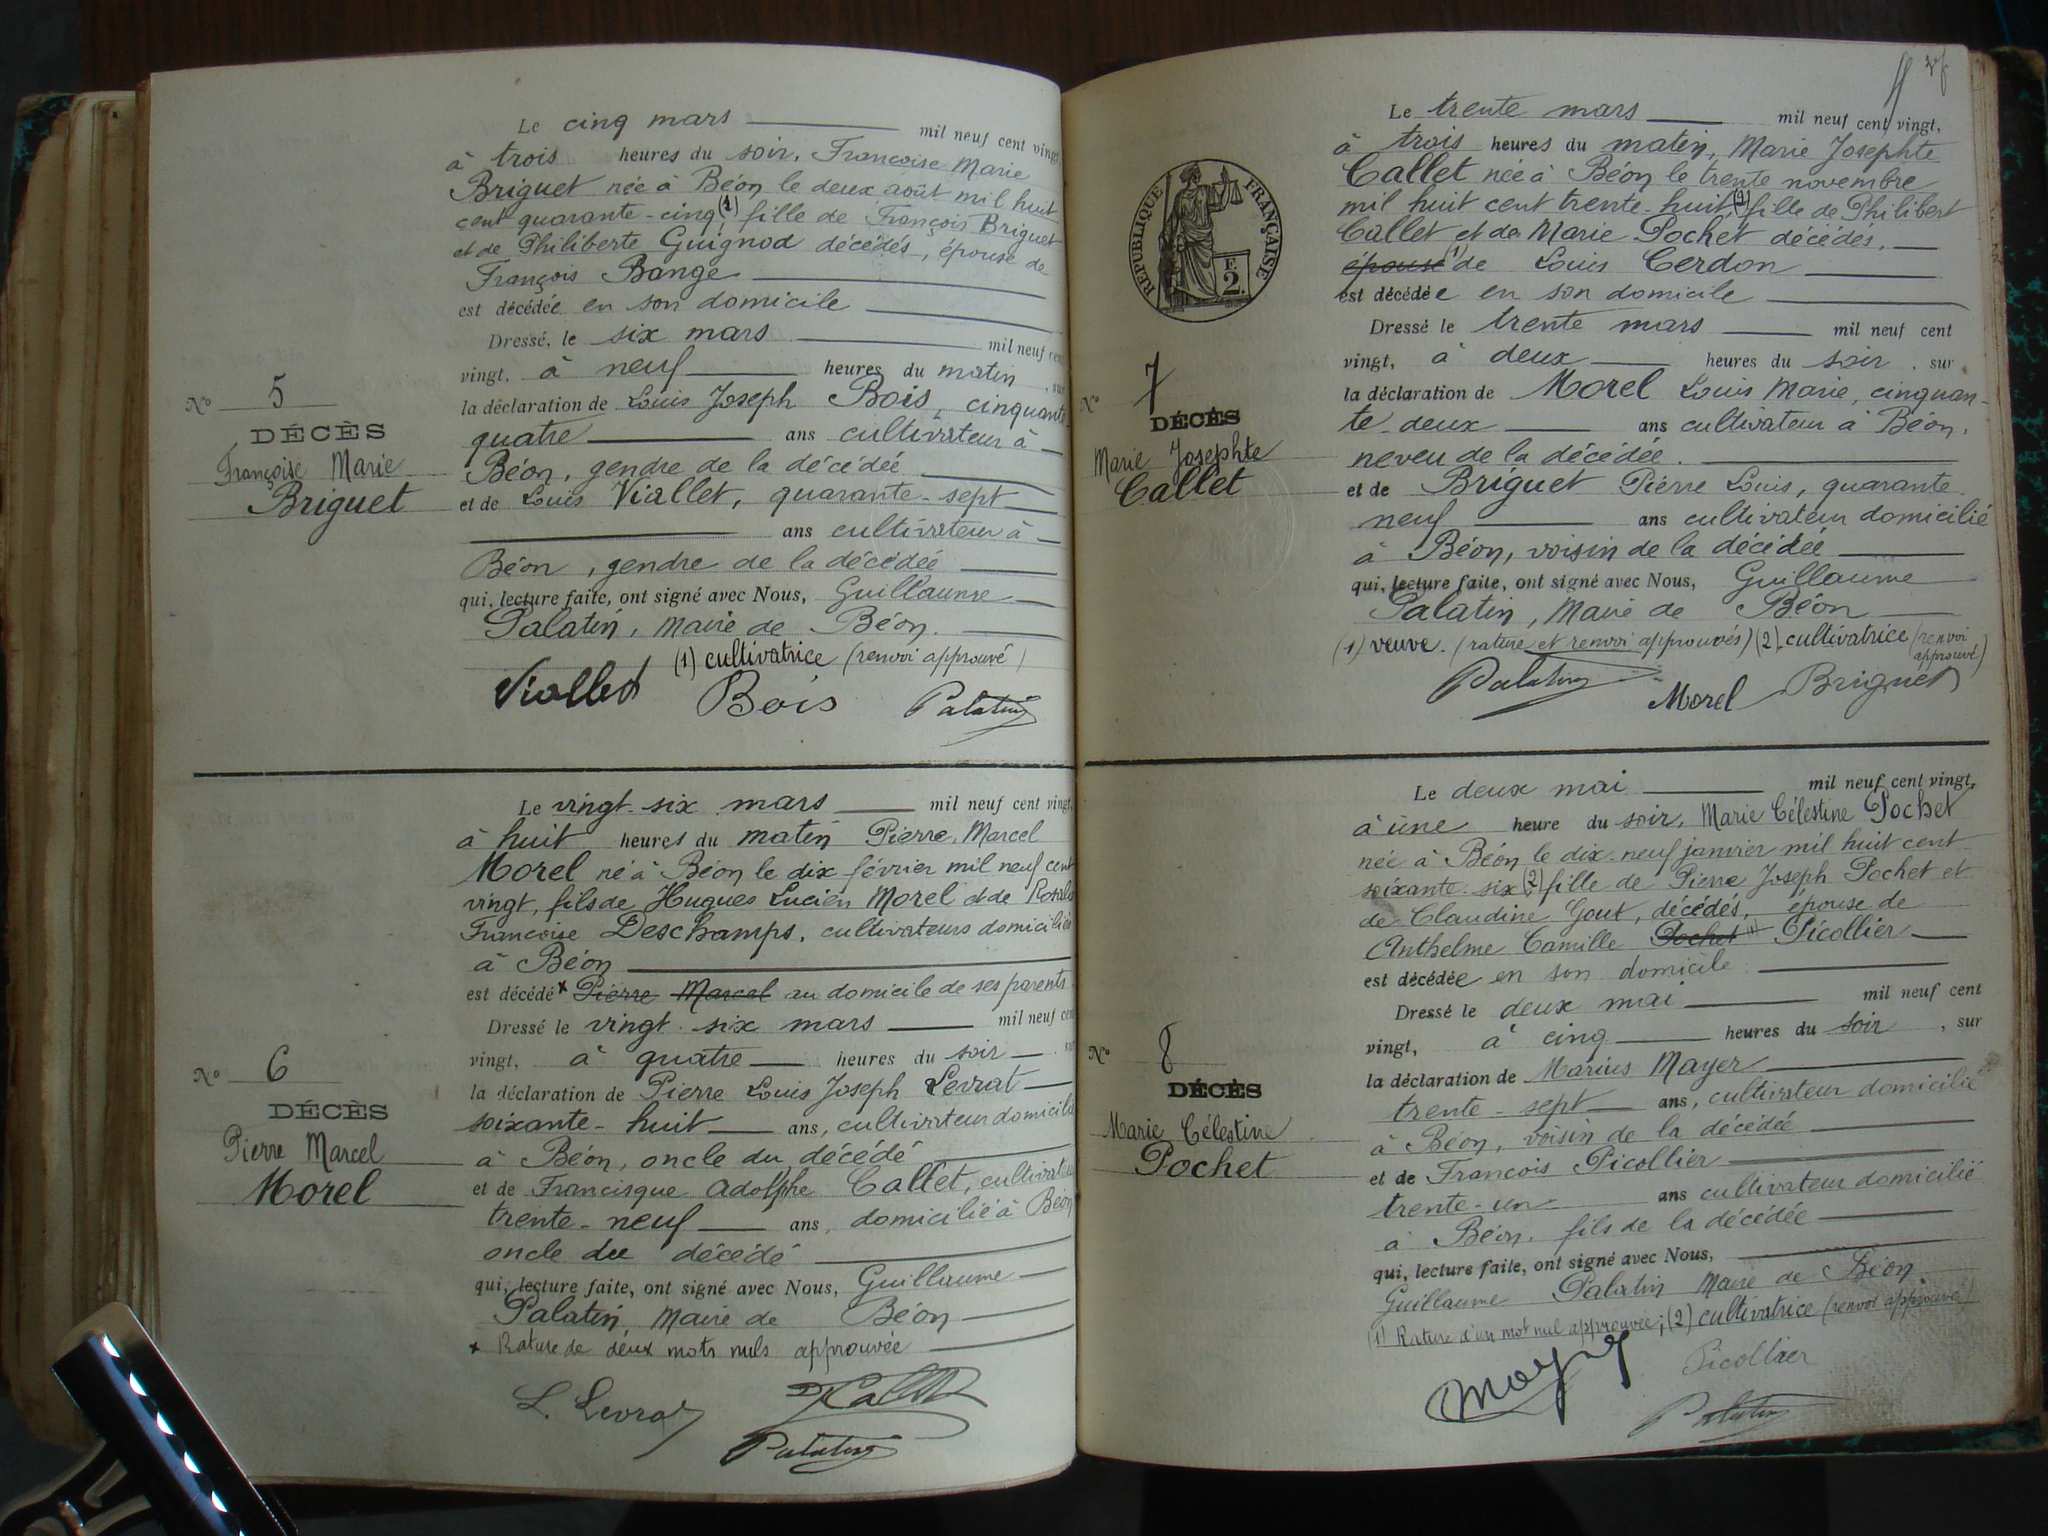 Le cinq mars mil neuf cent vingt,
à trois heures du soir, Françoise Marie
Briguet née à Béon le deux août mil huit
cent quarante-cinq (1) fille de François Briguet
et de Philiberte Guignod décédés, épouse de
François Bange
est décédée en son domicile
Dressé, le six mars mil neuf cent
vingt, à neuf heures du matin, sur
la déclaration de Louis Joseph Bois, cinquante
quatre ans cultivateur à
Béon, gendre de la décédée
et de Louis Viallet, quarante-sept
ans cultivateur à
Béon, gendre de la décédée
qui, lecture faite, ont signé avec Nous, Guillaume
Palatin, Maire de Béon.
(1) cultivatrice (renvoi approuvé)
Viallet Bois Palatin
N° 5
DÉCÈS
Françoise Marie
Briguet
Le vingt-six mars mil neuf cent vingt,
à huit heures du matin Pierre, Marcel
Morel né à Béon le dix février mil neuf cent
vingt, fils de Hugues Lucien Morel et de Rosalie
Françoise Deschamps, cultivateurs domiciliés
à Béon
est décédé x Pierre Marcel au domicile de ses parents
Dressé le vingt-six mars mil neuf cent
vingt, à quatre heures du soir, sur
la déclaration de Pierre Louis Joseph Levrat
soixante-huit ans, cultivateur domicilié
à Béon, oncle du décédé
et de Francisque Adolphe Callet, cultivateur
trente-neuf ans, domicilié à Béon
oncle du décédé
qui, lecture faite, ont signé avec Nous, Guillaume
Palatin Maire de Béon
x Rature de deux mots nuls approuvée
L. Levrat Callet
Palatin
N° 6
DÉCÈS
Pierre Marcel
Morel
Le trente mars mil neuf cent vingt,
à trois heures du matin, Marie Josephte
Callet née à Béon le trente novembre
mil huit cent trente-huit, (2) fille de Philibert
Callet et de Marie Pochet décédés,
épouse (1) de Louis Cerdon
est décédée en son domicile
Dressé le trente mars mil neuf cent
vingt, à deux heures du soir, sur
la déclaration de Morel Louis Marie, cinquan-
te-deux ans cultivateur à Béon,
neveu de la décédée.
et de Briguet Pierre Louis, quarante
neuf ans cultivateur domicilié
à Béon, voisin de la décédée
qui, lecture faite, ont signé avec Nous, Guillaume
Palatin, Maire de Béon
(1) veuve. (rature et renvoi approuvés) (2) cultivatrice (renvoi
approuvé)
Palatin Morel Briguet
RÉPUBLIQUE FRANÇAISE
F.
2.
N° 7
DÉCÈS
Marie Josephte
Callet
Le deux mai mil neuf cent vingt,
à une heure du soir, Marie Célestine Pochet
née à Béon le dix-neuf janvier mil huit cent
soixante-six (2) fille de Pierre Joseph Pochet et
de Claudine Gout, décédés, épouse de
Anthelme Camille Pochet (1) Picollier
est décédée en son domicile
Dressé le deux mai mil neuf cent
vingt, à cinq heures du soir, sur
la déclaration de Marius Mayer
trente-sept ans, cultivateur domicilié
à Béon, voisin de la décédée
et de François Picollier
trente-un ans cultivateur domicilié
à Béon, fils de la décédée
qui, lecture faite, ont signé avec Nous,
Guillaume Palatin Maire de Béon.
(1) Rature d'un mot nul approuvée; (2) cultivatrice (renvoi approuvé)
Mayer Picollier
Palatin
N° 8
DÉCÈS
Marie Célestine
Pochet